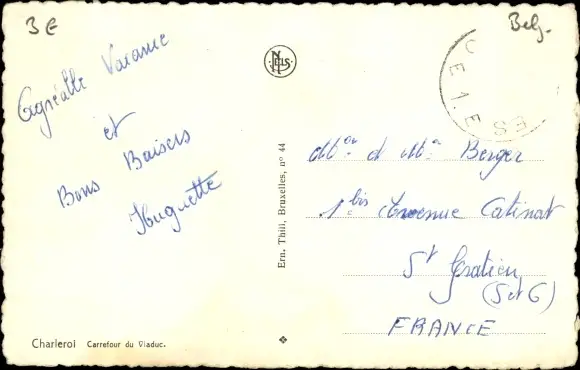 3 €
Belg.
Agréable Vacance
et
Bons Baisers
Huguette
NELS
Ern. Thill, Bruxelles, n° 44
Mor et Me Berger
1 bis Avenue Catinat
St Gratien
(S et O)
FRANCE
Charleroi Carrefour du Viaduc.